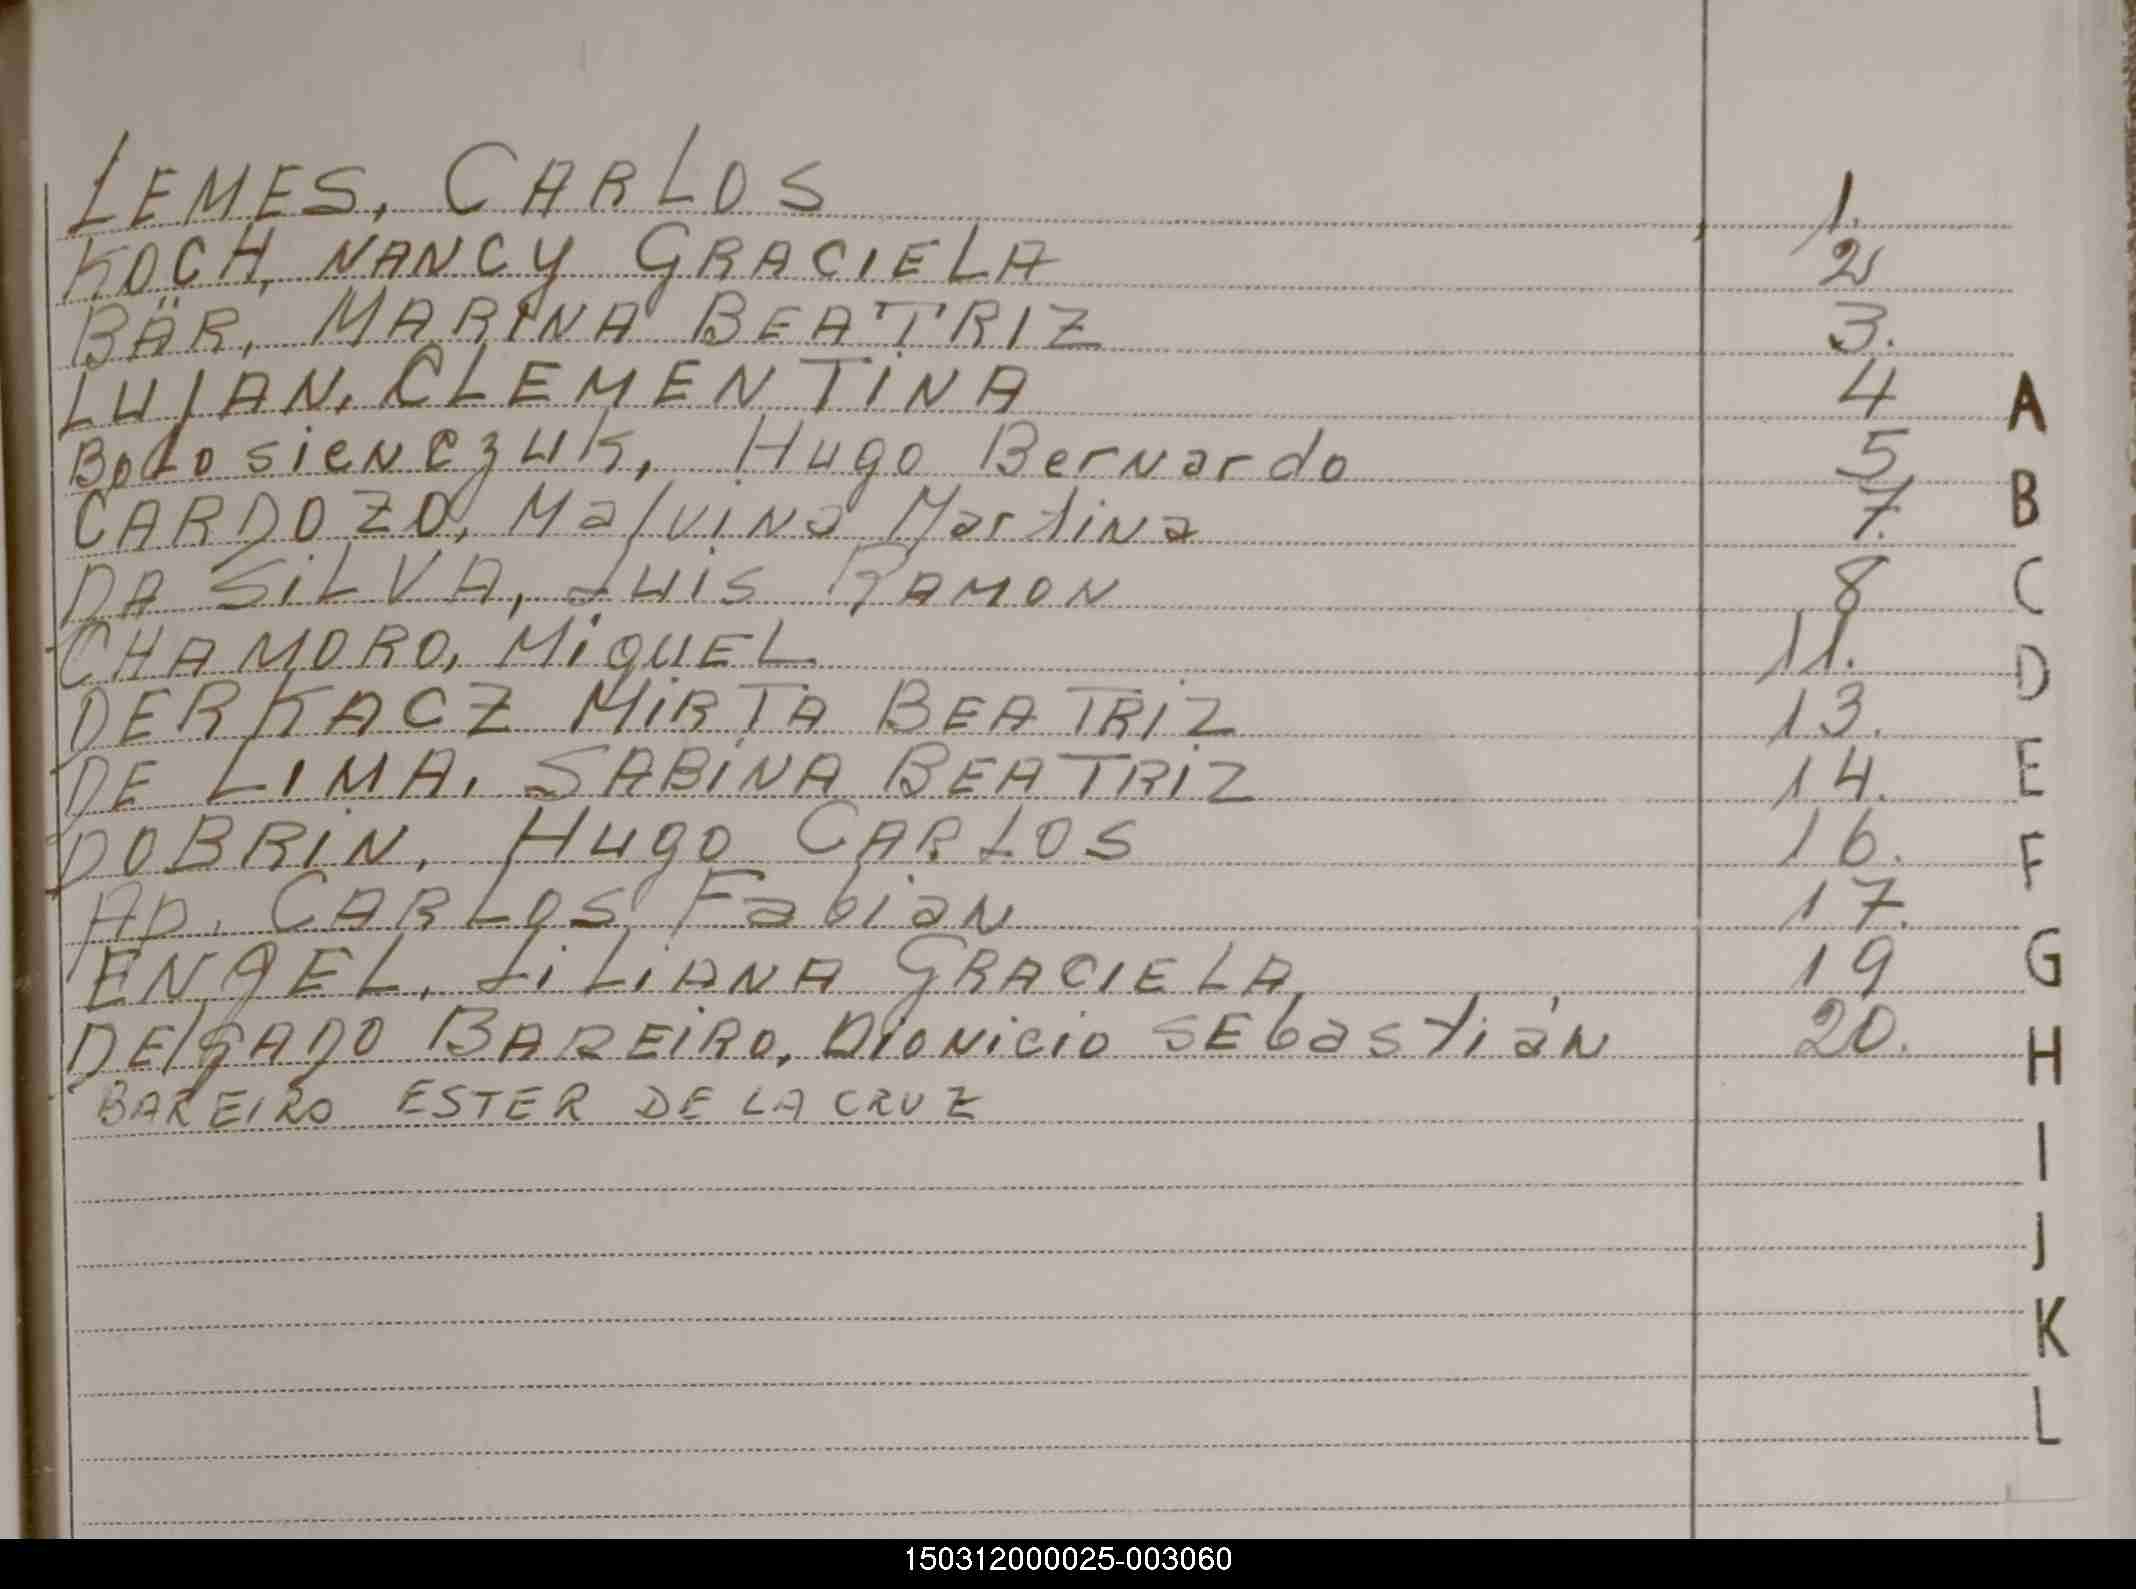 LEMES, CARLOS 1.
KOCH, NANCY GRACIELA 2
BÄR, MARINA BEATRIZ 3.
LUJAN, CLEMENTINA 4 A
Bolosienczuk, Hugo Bernardo 5
CARDOZO, Malvina Martina 7. B
DA SILVA, LUIS RAMON 8 C
CHAMORO, MiguEL 11. D
DERKACZ MIRTA BEATRIZ 13.
DE LIMA, SABINA BEATRIZ 14. E
DOBRIN, Hugo CARLOS 16. F
AD. CARLOS Fabian 17.
ENGEL, LILIANA GRACIELA 19 G
DELGADO BAREIRO, Dionicio SEbastián 20. H
BAREIRO ESTER DE LA CRUZ
I
J
K
L
150312000025-003060